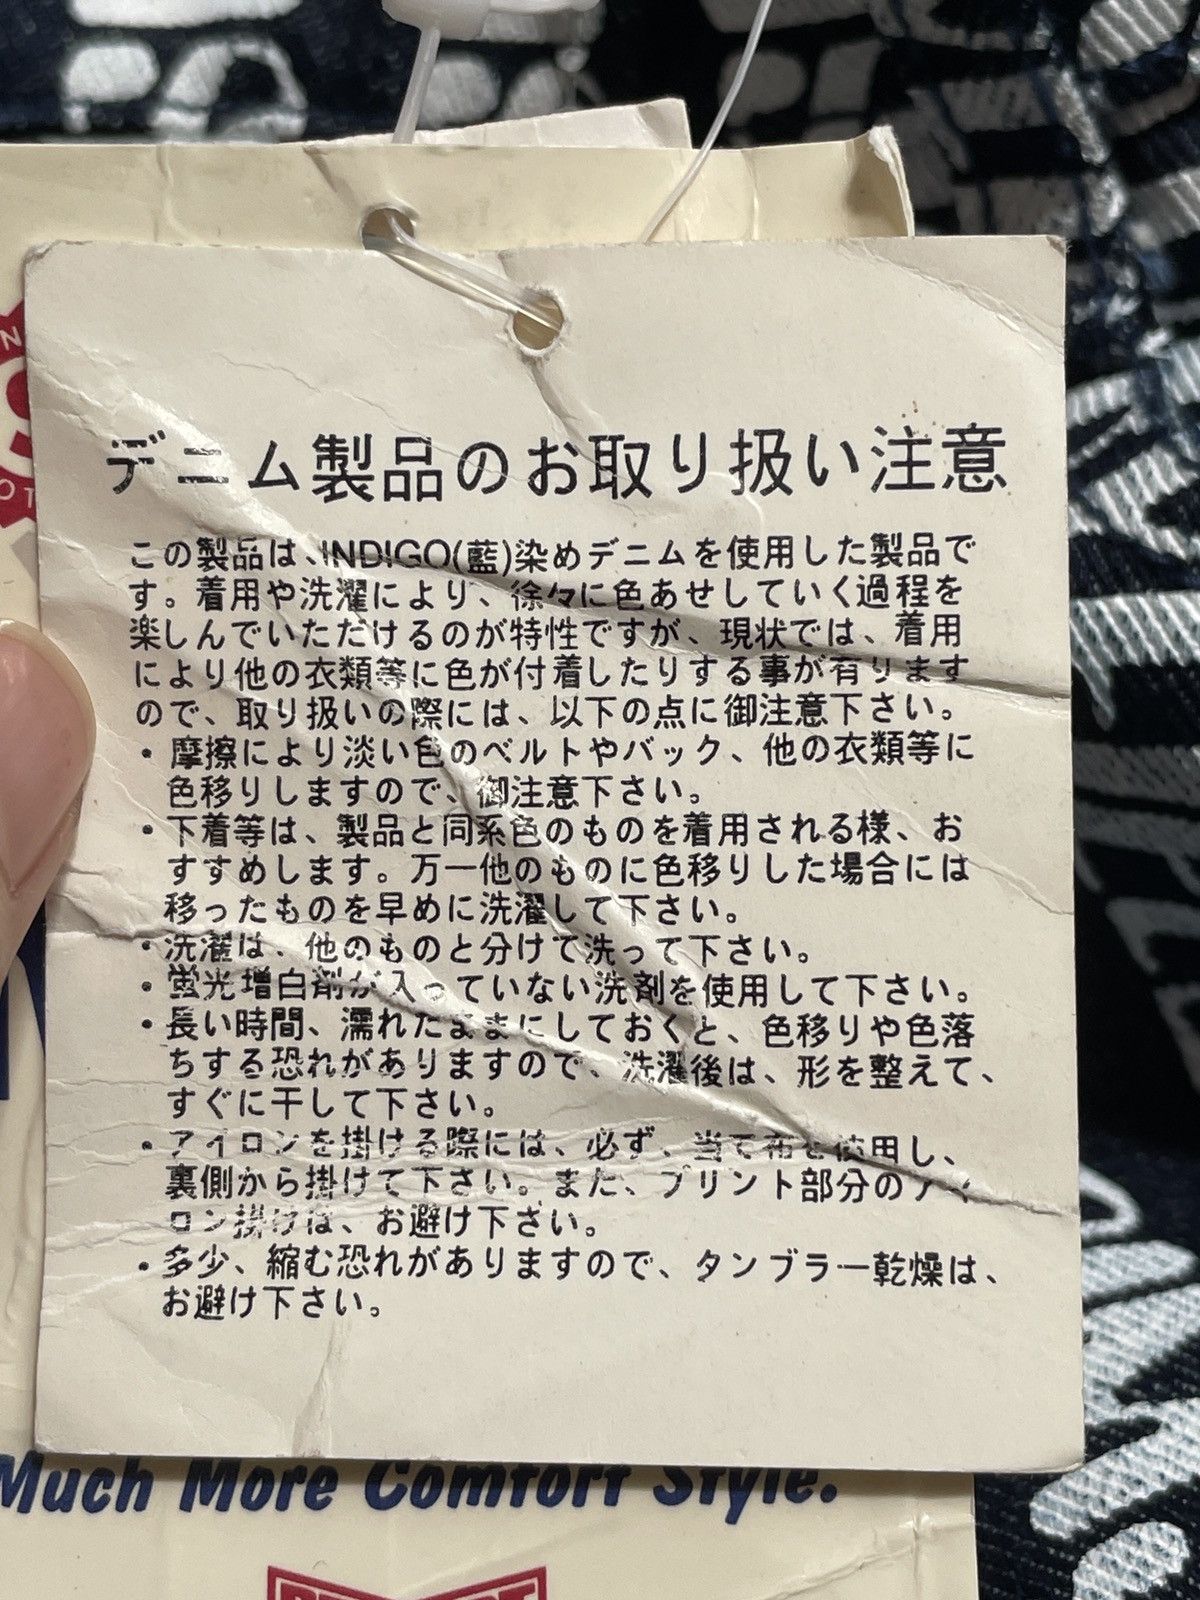 デニム製品のお取り扱い注意
この製品は、INDIGO(藍)染めデニムを使用した製品で
す。着用や洗濯により、徐々に色あせしていく過程を
楽しんでいただけるのが特性ですが、現状では、着用
により他の衣類等に色が付着したりする事が有ります
ので、取り扱いの際には、以下の点に御注意下さい。
・摩擦により淡い色のベルトやバック、他の衣類等に
色移りしますので、御注意下さい。
・下着等は、製品と同系色のものを着用される様、お
すすめします。万一他のものに色移りした場合には
移ったものを早めに洗濯して下さい。
・洗濯は、他のものと分けて洗って下さい。
・蛍光増白剤が入っていない洗剤を使用して下さい。
・長い時間、濡れたままにしておくと、色移りや色落
ちする恐れがありますので、洗濯後は、形を整えて、
すぐに干して下さい。
・アイロンを掛ける際には、必ず、当て布を使用し、
裏側から掛けて下さい。また、プリント部分のアイ
ロン掛けは、お避け下さい。
・多少、縮む恐れがありますので、タンブラー乾燥は、
お避け下さい。
Much More Comfort Style.